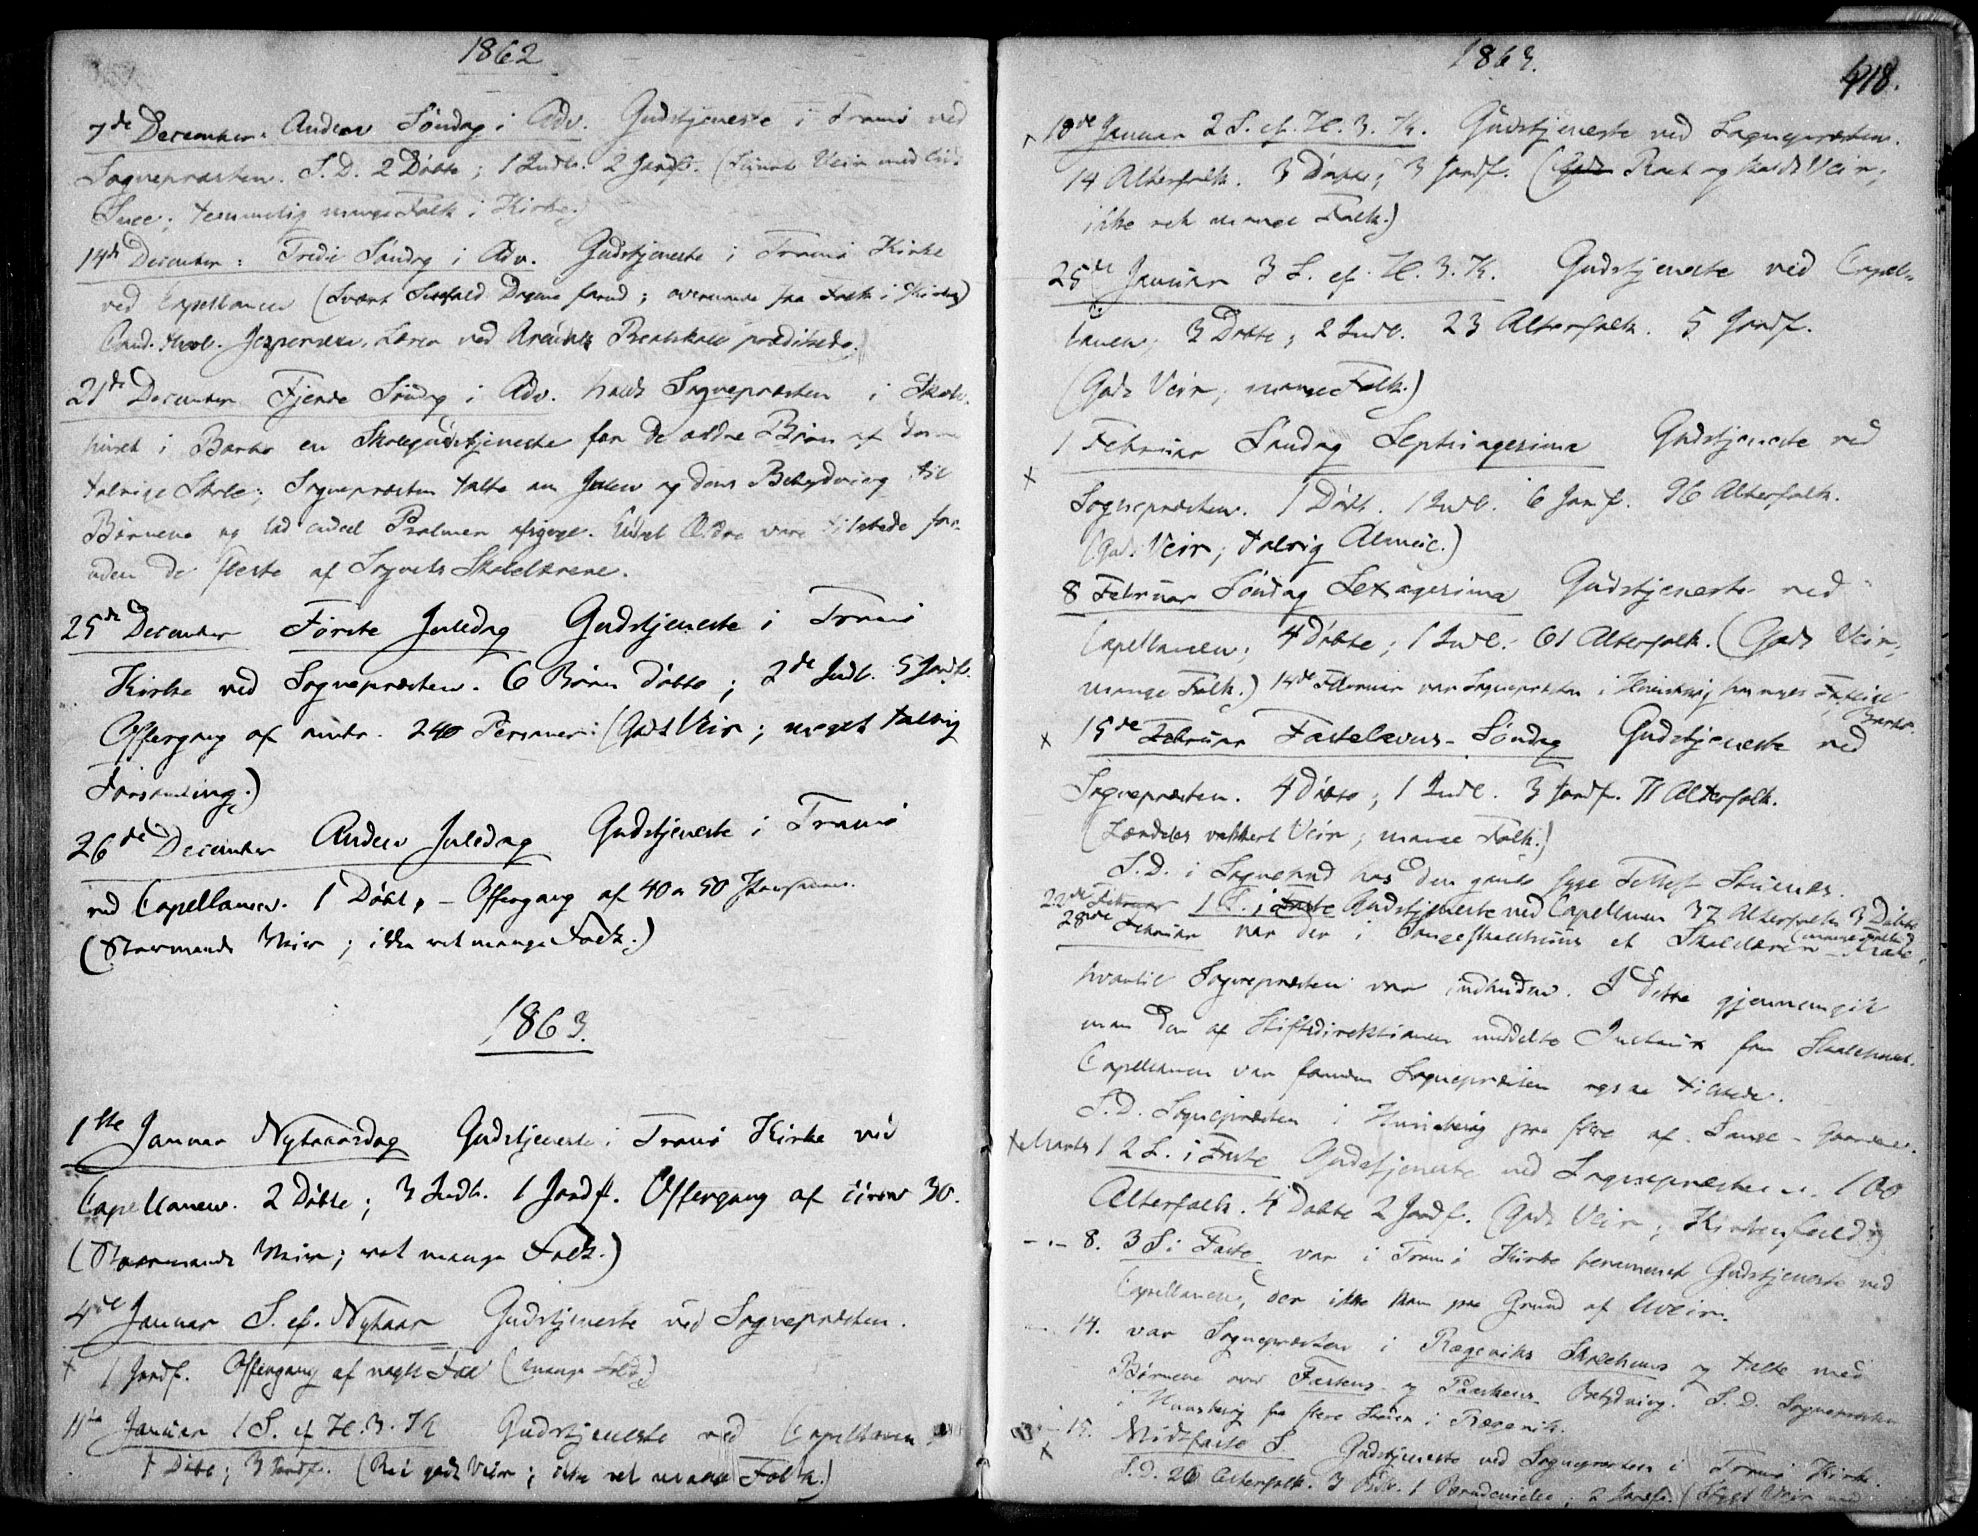 1862
7de December. Anden Søndag i Adv. Gudstjeneste i Tromø ved
Sognepræsten. S. D. 2 Døbte; 1 Indl. 2 Jordf. (Smukt Veir med lidt
Snee; temmelig mange Folk i Kirke.)
14de December: Tredie Søndag i Adv. Gudstjeneste i Tromø Kirke
ved Capellanen (Svært Sneefald Dagene forud; overmaade faa Folk i Kirken)
Cand. theol. Jespersen, Lærer ved Arendals Realskole prædikede.
21de December Fjerde Søndag i Adv. holdt Sognepræsten i Skole-
huset i Barbo en Skolegudstjeneste for de ældre Børn af den
talrige Skole; Sognepræsten talte om Julen og dens Betydning til
Børnene og lod endeel Psalmer afsynge. Endel Ældre vare tilstede for-
uden de fleste af Sognets Skolelærere.
25de December Første Juledag Gudstjeneste i Tromø
Kirke ved Sognepræsten. 6 Børn døbte; 2de Indl. 5 Jordf.
Offergang af omtr. 240 Personer: (Godt Veir; meget talrig
Forsamling.)
26de December Anden Juledag Gudstjeneste i Tromø
ved Capellanen. 1 Døbt, – Offergang af 40 a 50
(Stormende Veir; ikke ret mange Folk.)
1863.
1ste Januar Nytaarsdag Gudstjeneste i Tromø Kirke ved
Capellanen. 2 Døbte; 3 Indl. 1 Jordf. Offergang af circa 30.
(Stormende Veir; ret mange Folk.)
4de Januar S. ef. Nytaar Gudstjeneste ved Sognepræsten.
+ 1 Jordf. Offergang af nogle Faa (mange Folk)
11te Januar 1 S. ef. H. 3. K. Gudstjeneste ved Capellanen.
1 Døbt; 3 Jordf. (Ret godt Veir; ikke ret mange Folk.)
1863.
418.
18de Januar 2 S. ef. H. 3. K. Gudstjeneste ved Sognepræsten.
14 Alterfolk. 3 Døbte; 3 Jordf. ( Raat og koldt Veir;
ikke ret mange Folk.)
25de Januar 3 S. ef. H. 3. K. Gudstjeneste ved Capel-
lanen; 3 Døbte; 2 Indl. 23 Alterfolk. 5 Jordf.
(Godt Veir, mange Folk.)
1 Februar Søndag Septuagesima Gudstjeneste ved
+
Sognepræsten. 1 Døbt. 1 Indl. 6 Jordf. 26 Alterfolk.
(Godt Veir; talrig Almue.)
8 Februar Søndag Sexagesima Gudstjeneste ved
Capellanen; 4 Døbte; 1 Indl. 61 Alterfolk. (Godt Veir;
mange Folk.) 14de Februar var Sognepræsten i Huusbesøg hos nogle Fattige
Barbo.
+ 15de Februar Fastelavns-Søndag Gudstjeneste ved
Sognepræsten. 4 Døbte; 1 Indl. 3 Jordf. 71 Alterfolk.
(Særdeles vakkert Veir; mange Folk.)
S. D. i Sognebud hos den gamle syge
22de Februar 1 S. i Faste Gudstjeneste ved Capellanen 37 Alterfolk 3 Døbte
(mange Folk)
28de Februar var der i Songe Skolehuus et Skolelærer-Møde,
hvortil Sognepræsten var indbuden. I dette gjennemgik
man den af Stiftsdirektionen meddelte Instrux for Skoleholdet.
Capellanen var foruden Sognepræsten ogsaa tilstede.
S. D. Sognepræsten i Huusbesøg paa flere af Songe-Gaardene.
+ Marts 1 2 S. i Faste Gudstjeneste ved Sognepræsten. 100
Alterfolk. 4 Døbte 2 Jordf. (Godt Veir; Kirken fuld)
– „ – 8. 3 S i Faste var i Tromø Kirke berammet Gudstjeneste ved
Capellanen, der ikke kom paa Grund af Uveir.
– 14. var Sognepræsten i Rægeviks Skolehuus og talte med
Børnene om Fastens og Paaskens Betydning. S. D. Sognepræsten
i Huusbesøg paa flere Steder i Rægevik.
– 15. Midfaste S. Gudstjeneste ved Sognepræsten i Tromø Kirke.
+
S. D. 26 Alterfolk. 3 Indl. 1 Brudevielse; 2 Jordf. (Stygt Veir med